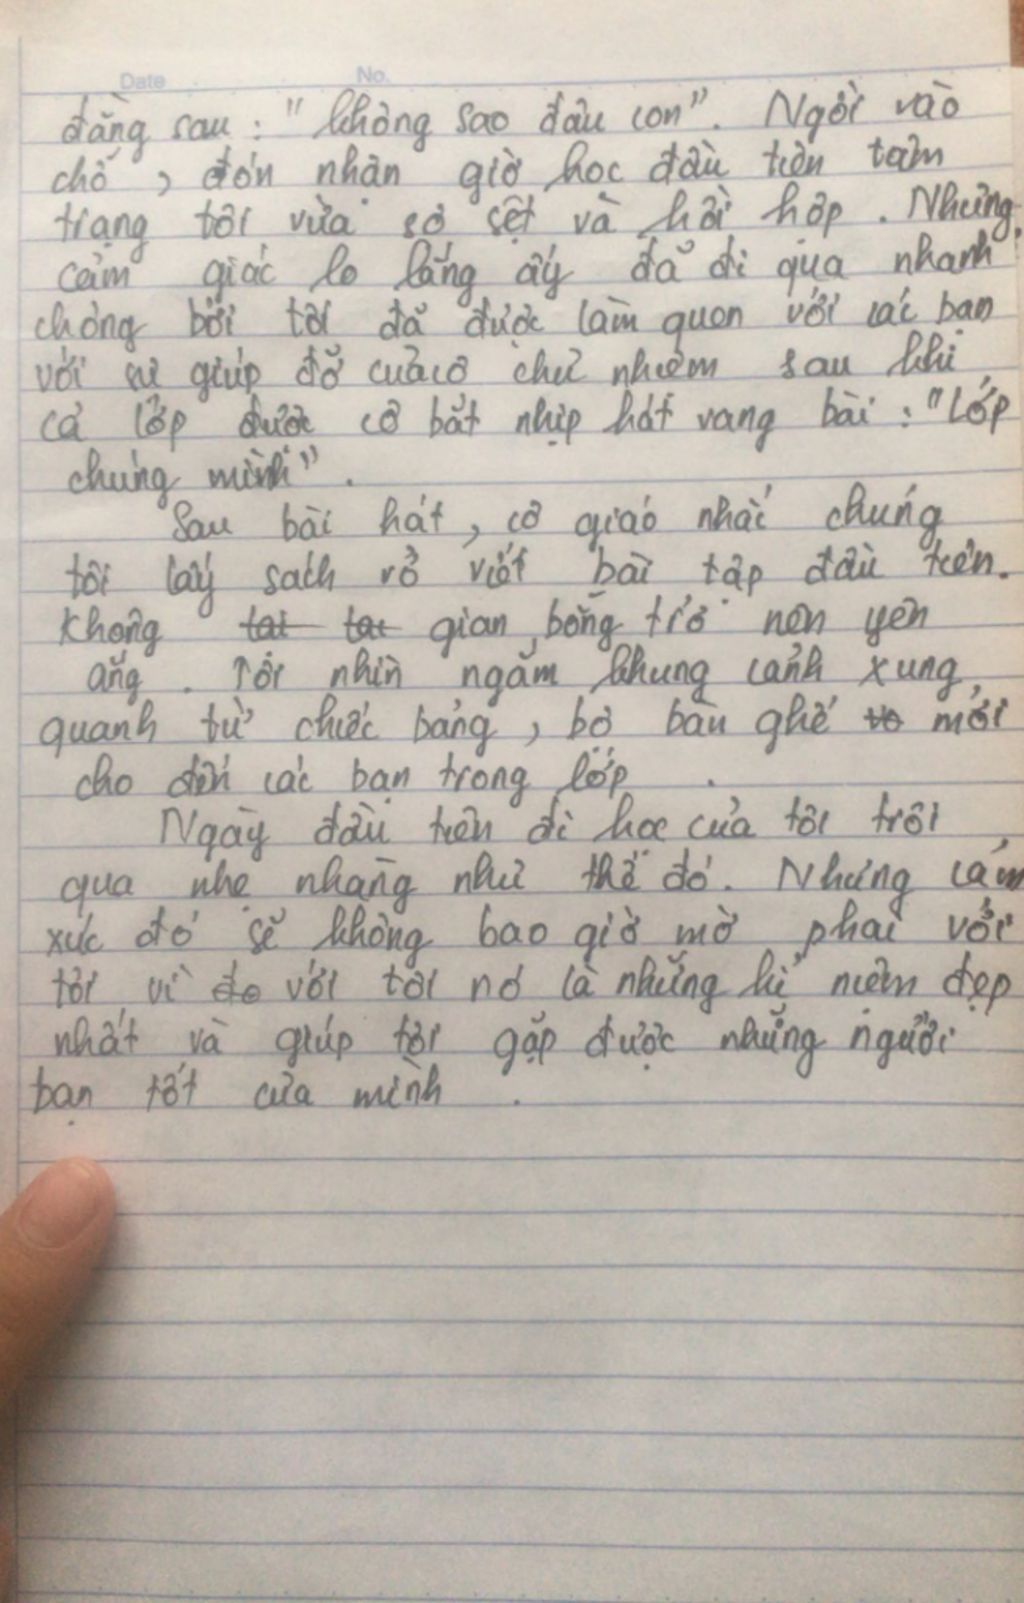 Date No.
đằng sau : "không sao đâu con". Ngồi vào
chỗ, đón nhận giờ học đầu tiên tâm
trạng tôi vừa sợ sệt và hồi hộp. Nhưng
cảm giác lo lắng ấy đã đi qua nhanh
chóng bởi tôi đã được làm quen với các bạn
với sự giúp đỡ của cô chủ nhiệm sau khi
cả lớp được cô bắt nhịp hát vang bài : "Lớp
chúng mình".
Sau bài hát, cô giáo nhắc chúng
tôi lấy sách vở viết bài tập đầu tiên.
Không gian bỗng trở nên yên
ắng. Tôi nhìn ngắm khung cảnh xung
quanh từ chiếc bảng, bộ bàn ghế mới
cho đến các bạn trong lớp.
Ngày đầu tiên đi học của tôi trôi
qua nhẹ nhàng như thế đó. Nhưng cảm
xúc đó sẽ không bao giờ mờ phai với
tôi vì với tôi nó là những kỉ niệm đẹp
nhất và giúp tôi gặp được những người
bạn tốt của mình.